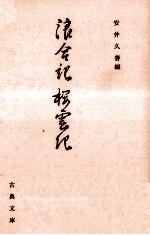 安井久善編
浪合記 櫻雲記
古典文庫